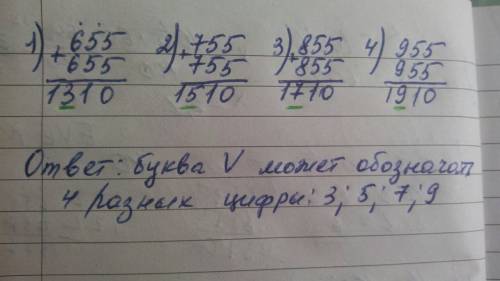 1) 655 2) 755 3) 855 4) 955
+ 655 + 755 + 855 955
1310 1510 1710 1910
Ответ: буква V может обозначат
4 разных цифры: 3; 5; 7; 9